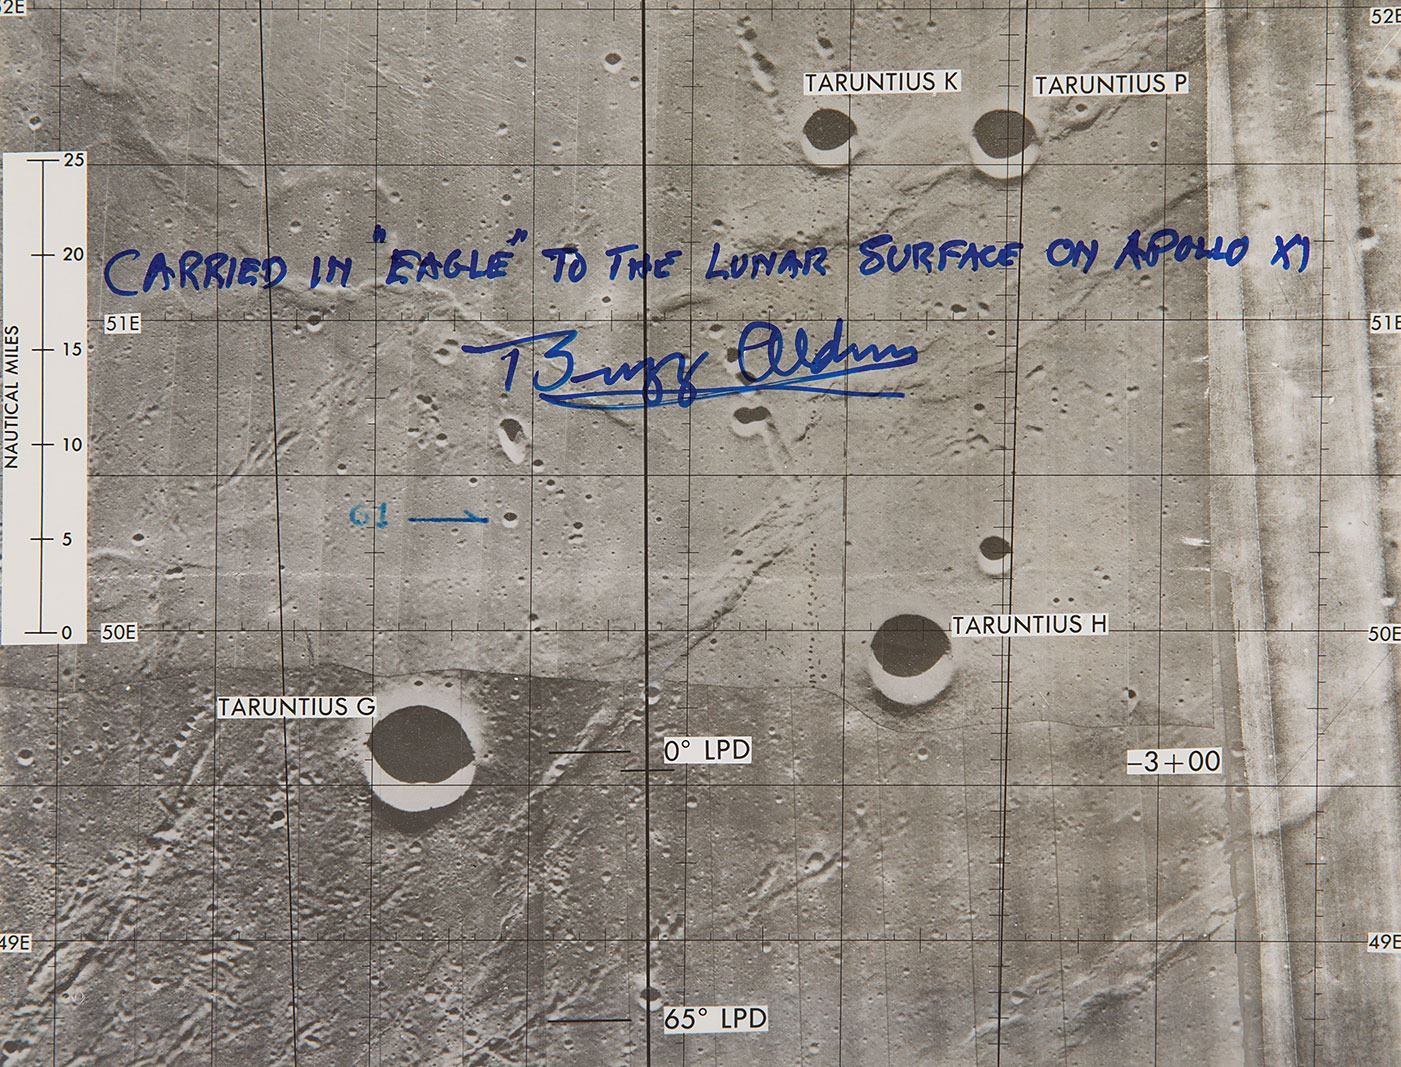 52E
52E
TARUNTIUS K
TARUNTIUS P
25
20
15
10
5
0
NAUTICAL MILES
CARRIED IN "EAGLE" TO THE LUNAR SURFACE ON APOLLO XI
51E
51E
Buzz Aldrin
61
50E
50E
TARUNTIUS H
TARUNTIUS G
0° LPD
-3+00
49E
49E
65° LPD